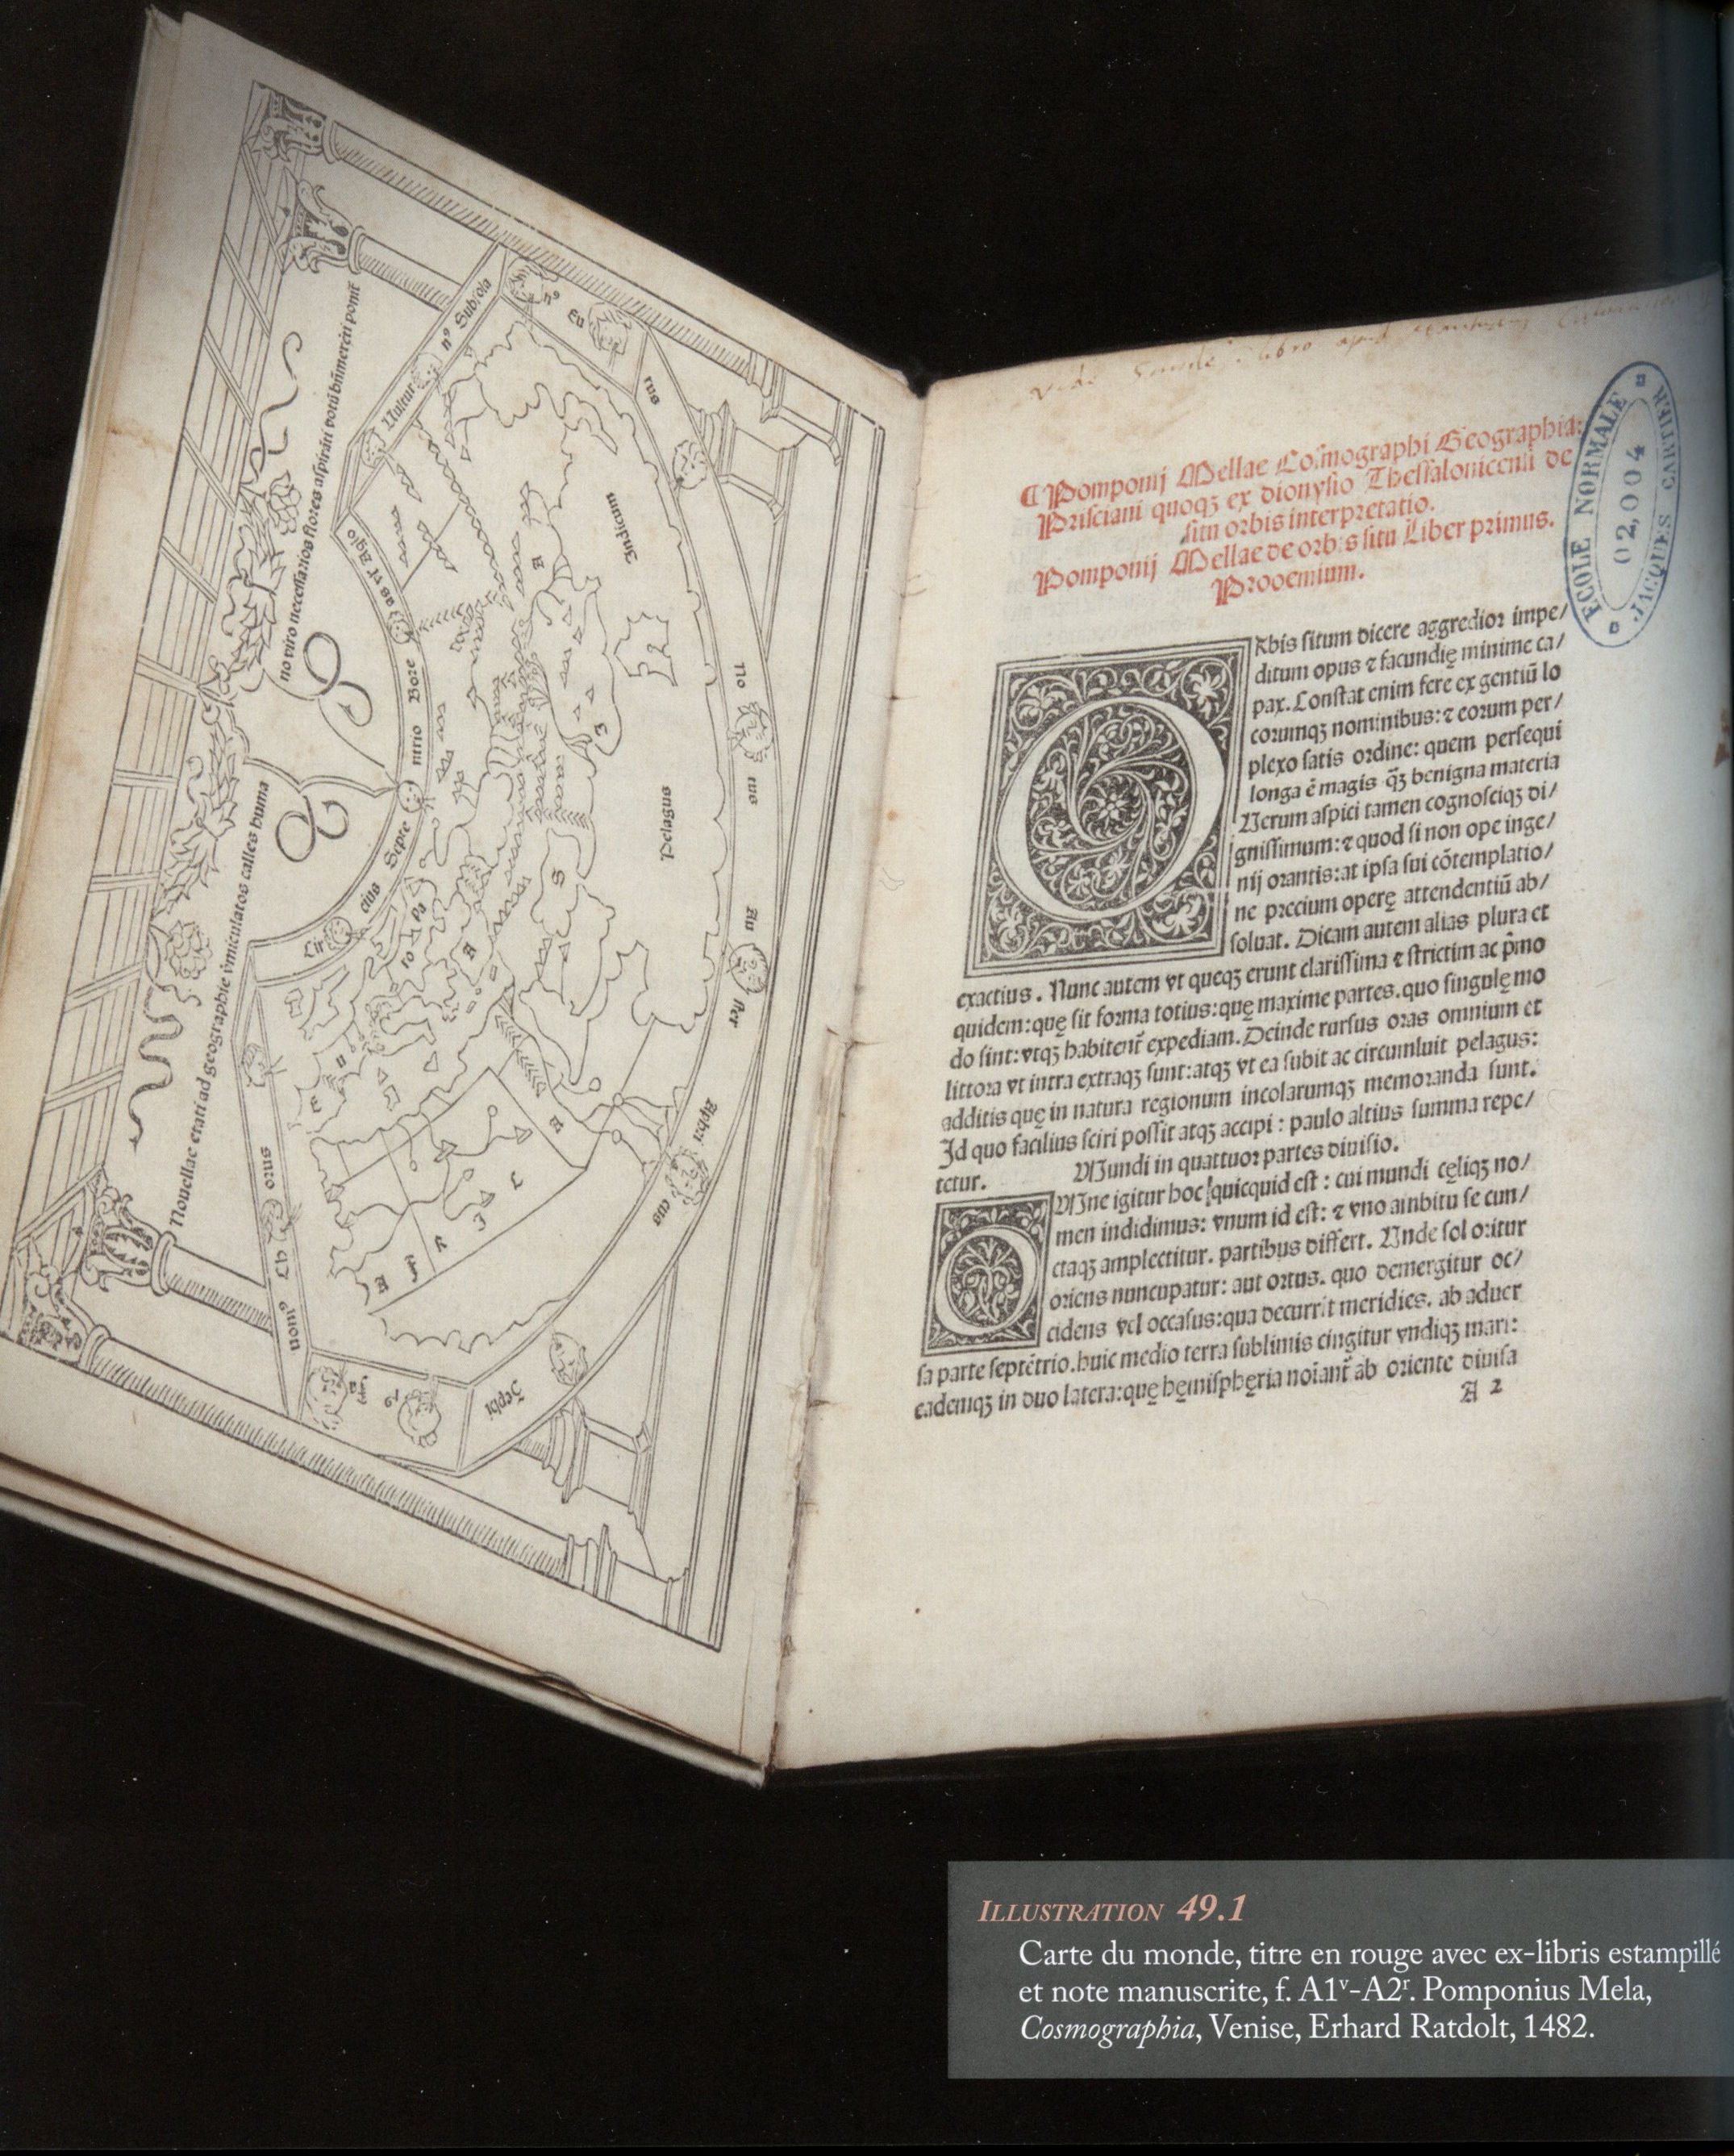 Nouellae etati ad geographie v̄miculatos calles huma
no viro necessarios flores aspirāti votū bn̄mereti ponit̄
Septe
mtrio
Bore
as vt Agio
Uultur
n⁹
Subsola
n⁹
Eu
rus
no
tus
Au
ster
Aphri
cus
Zephi
Cho
rus
Cir
cius
Indicum
Pelagus
¶ Pomponij Mellae Cosmographi Geographia:
Prisciani quoqꝫ ex dionysio Thessalonicensi de
situ orbis interpretatio.
Pomponij Mellae de orbis situ Liber primus.
Prooemium.
ORbis situm dicere aggredior impe/
ditum opus ⁊ facundię minime ca/
pax. Constat enim fere ex gentiū lo
corumqꝫ nominibus: ⁊ eorum per/
plexo satis ordine: quem persequi
longa ē magis q̄ꝫ benigna materia
Uerum aspici tamen cognosciqꝫ di/
gnissimum: ⁊ quod si non ope inge/
nij orantis: at ipsa sui cōtemplatio/
ne precium operę attendentiū ab/
soluat. Dicam autem alias plura et
exactius. Nunc autem vt queqꝫ erunt clarissima ⁊ strictim ac p̄mo
quidem: quę sit forma totius: quę maxime partes. quo singulę mo
do sint: vtqꝫ habitent̄ expediam. Deinde rursus oras omnium et
littora vt intra extraqꝫ sunt: atqꝫ vt ea subit ac circumluit pelagus:
additis quę in natura regionum incolarumqꝫ memoranda sunt.
Id quo facilius sciri possit atqꝫ accipi: paulo altius summa repe/
tetur. Mundi in quattuor partes diuisio.
OMne igitur hoc quicquid est: cui mundi cęliqꝫ no/
men indidimus: vnum id est: ⁊ vno ambitu se cun/
ctaqꝫ amplectitur. partibus differt. Unde sol oritur
oriens nuncupatur: aut ortus. quo demergitur oc/
cidens vel occasus: qua decurrit meridies. ab aduer
sa parte septētrio. huic medio terra sublimis cingitur vndiqꝫ mari:
eademqꝫ in duo latera: quę hęmisphęria noīant̄ ab oriente diuisa
A 2
ECOLE NORMALE
02,004
JACQUES CARTIER
ILLUSTRATION 49.1
Carte du monde, titre en rouge avec ex-libris estampillé
et note manuscrite, f. A1ᵛ-A2ʳ. Pomponius Mela,
Cosmographia, Venise, Erhard Ratdolt, 1482.